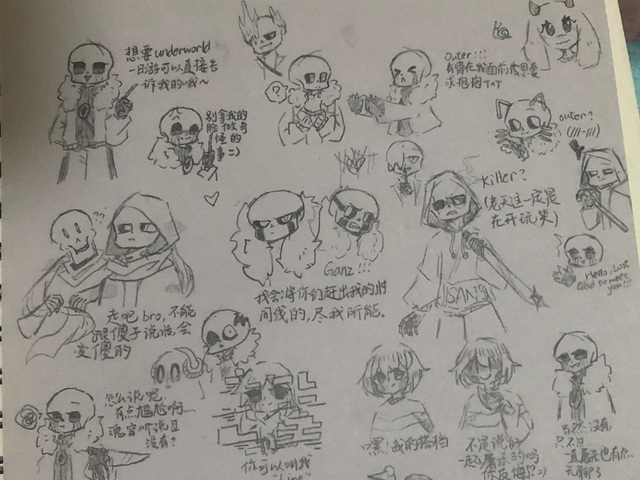 想要underworld
一日游可以直接告
诉我的哦~
别拿我的
脸做奇
怪的
事=)
?
outer!!!
求抱抱T^T
outer?
(///-///)
killer?
(老天这一定是
在开玩笑)
Hello, Lust
Glad to meet
you!!
??
走吧bro,不能
跟傻子说话,会
变傻的
Ganz!!!
我会将你们赶出我的时
间线的,尽我所能。
SANS
怎么说呢,
有点尴尬啊...
没有?
你可以叫我
嘿!我的搭档
不是说好
一起屠杀的吗
你反悔?=)
当然没有